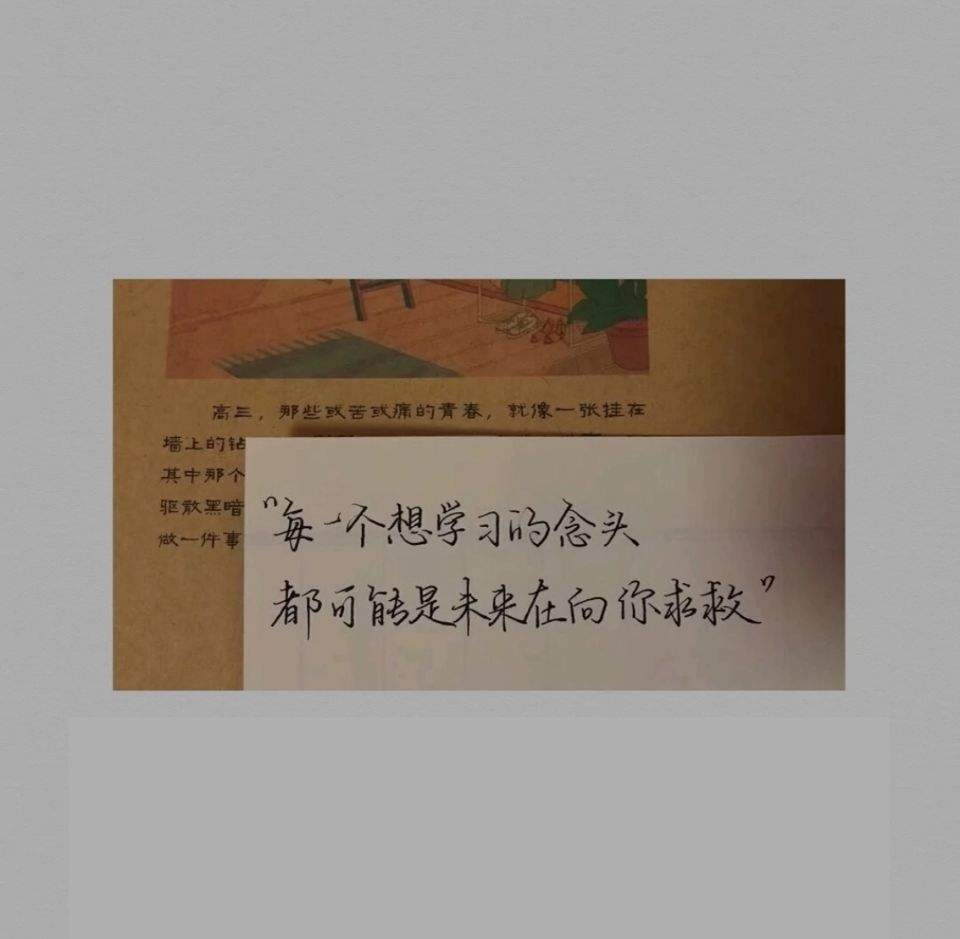 高三，那些或苦或痛的青春，就像一张挂在
墙上的钻
其中那个
驱散黑暗
做一件事
"每一个想学习的念头
都可能是未来在向你求救"